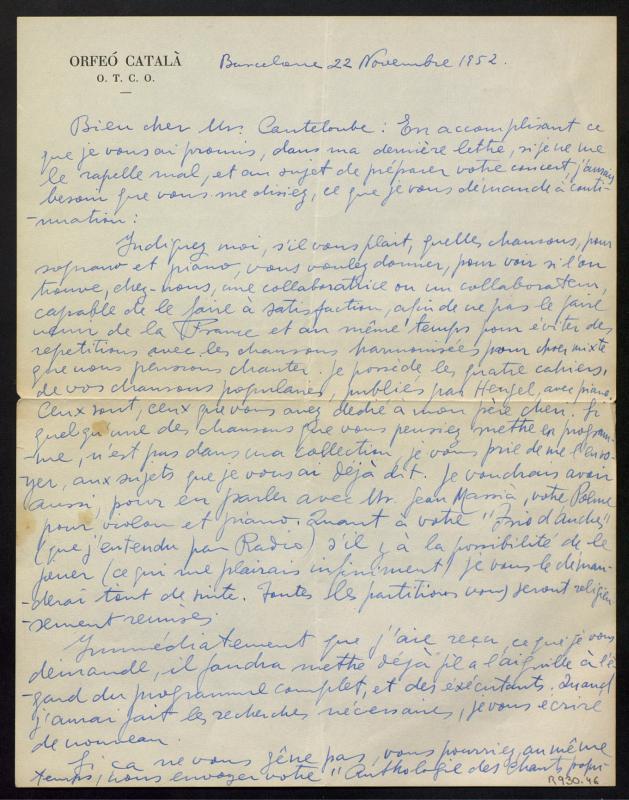 ORFEÓ CATALÀ
O. T. C. O.
Barcelone 22 Novembre 1952.
Bien cher Mr. Canteloube: En accomplisant ce
que je vous ai promis, dans ma dernière lettre, si je ne me
le rapelle mal, et au sujet de préparer votre concert, j'aurais
besoin que vous me disiez, ce que je vous demande à conti-
-nuation:
Indiquez moi, s'il vous plait, quelles chansons, pour
soprano et piano, vous voulez donner, pour voir si l'on
trouve, chez-nous, une collaboratrice ou un collaborateur,
capable de le faire à satisfaction, afin de ne pas le faire
venir de la France et au même temps pour éviter des
repetitions avec les chansons harmonisées pour choer mixte
que nous pensions chanter. Je possède les quatre cahiers,
de vos chansons populaires, publiés par Heugel, avec piano.
Ceux sont, ceux que vous avez dedié à mon père cheri. Si
quelqu'une des chansons que vous pensiez mettre en program-
-me, n'est pas dans ma collection, je vous prie de me l'envo-
yer, aux sujets que je vous ai déjà dit. Je voudrais avoir
aussi, pour en parler avec Mr. Jean Massià, votre Poème
pour violon et piano. Quant à votre "Trio d'anches"
(que j'entendu par Radio) s'il y à la possibilité de le
jouer (ce qui me plairais infiniment) je vous le deman-
-derai tout de suite. Toutes les partitions vous seront religieu-
-sement remises.
Immédiatement que j'aie reçu, ce que je vous
demande, il faudra mettre déjà fil a l'aiguille à l'é-
-gard du programme complet, et des éxécutants. Quand
j'aurai fait les recherches nécessaires, je vous écrire
de nouveau.
Si ça ne vous gêne pas, vous pourriez, au même
temps, nous envoyer votre "Anthologie des Chants popu-
R930.46